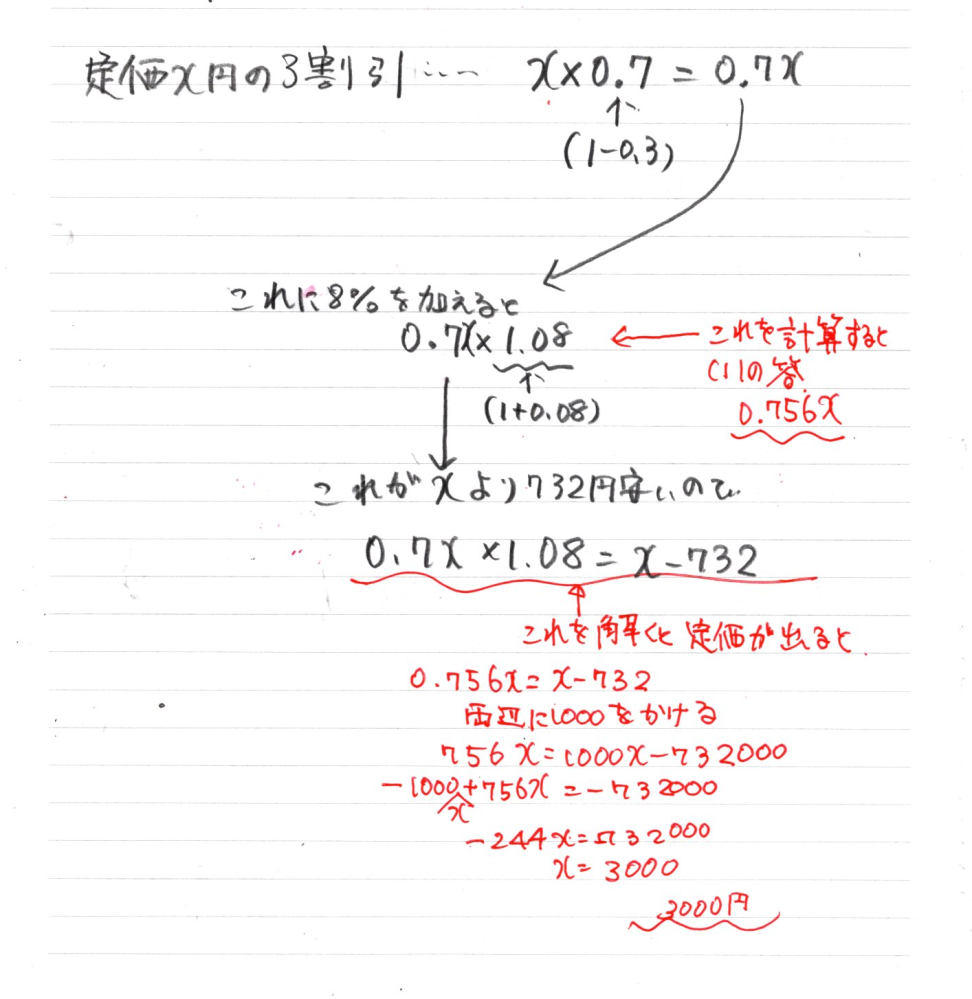 定価x円の3割引…… x×0.7=0.7x
(1-0.3)
これに8%を加えると
0.7x×1.08
これを計算すると
(1)の答
(1+0.08)
0.756x
これがxより732円安いので
0.7x×1.08=x-732
これを解くと定価が出ると
0.756x=x-732
両辺に1000をかける
756x=1000x-732000
-1000x+756x=-732000
-244x=-732000
x=3000
3000円